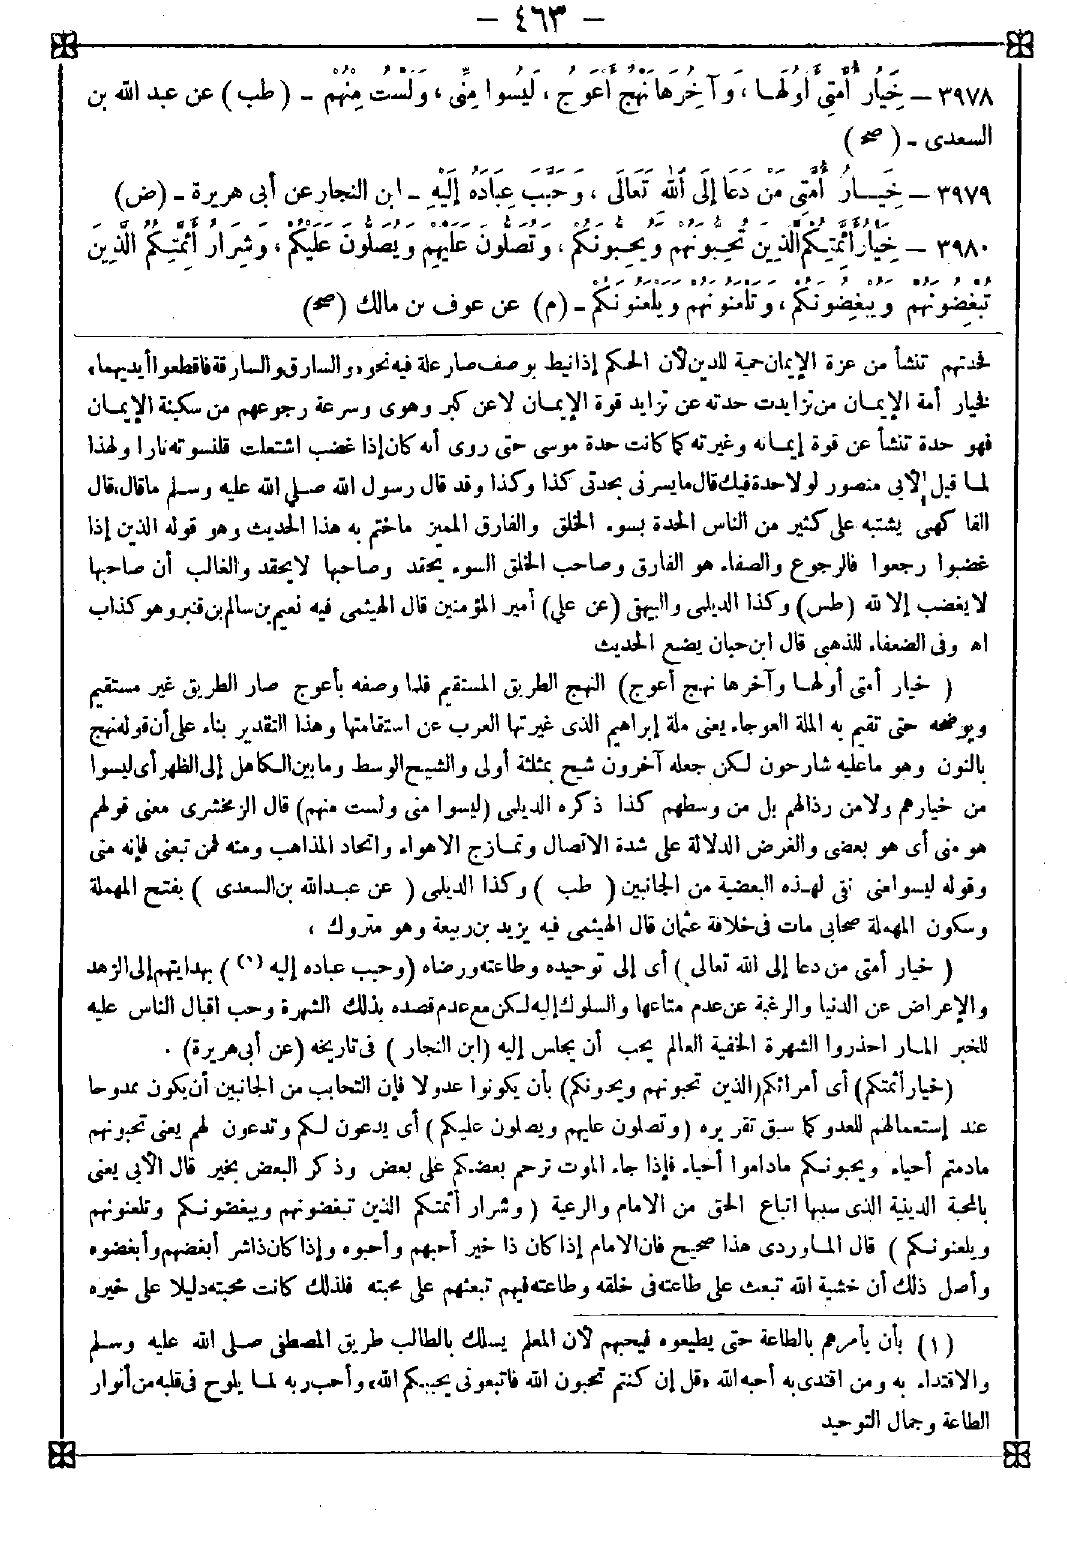 – ٤٦٣ –
٣٩٧٨ – خِيَارُ أُمَّتِي أَوَّلُهَا ، وَآخِرُهَا نَهْجٌ أَعْوَجُ ، لَيْسُوا مِنِّي ، وَلَسْتُ مِنْهُمْ – (طب) عن عبد الله بن
السعدى – (صح)
٣٩٧٩ – خِيَارُ أُمَّتِي مَنْ دَعَا إِلَى اللَّهِ تَعَالَى ، وَحَبَّبَ عِبَادَهُ إِلَيْهِ – ابن النجار عن أبى هريرة – (ض)
٣٩٨٠ – خِيَارُ أَئِمَّتِكُمُ الَّذِينَ تُحِبُّونَهُمْ وَيُحِبُّونَكُمْ ، وَتُصَلُّونَ عَلَيْهِمْ وَيُصَلُّونَ عَلَيْكُمْ ، وَشِرَارُ أَئِمَّتِكُمُ الَّذِينَ
تُبْغِضُونَهُمْ وَيُبْغِضُونَكُمْ ، وَتَلْعَنُونَهُمْ وَيَلْعَنُونَكُمْ – (م) عن عوف بن مالك (صح)
فحدتهم تنشأ من عزة الإيمان حمية للدين لأن الحكم إذا نيط بوصف صار علة فيه نحو «والسارق والسارقة فاقطعوا أيديهما»
فخيار أمة الإيمان من تزايدت حدته عن تزايد قوة الإيمان لا عن كبر وهوى وسرعة رجوعهم من سكينة الإيمان
فهو حدة تنشأ عن قوة إيمانه وغيرته كما كانت حدة موسى حتى روى أنه كان إذا غضب اشتعلت قلنسوته نارا ولهذا
لما قيل لأبى منصور لولا حدة فيك قال ما يسرنى بحدتى كذا وكذا وقد قال رسول الله صلى الله عليه وسلم ما قال، قال
الفاكهى يشتبه على كثير من الناس الحدة بسوء الخلق والفارق المميز ما ختم به هذا الحديث وهو قوله الذين إذا
غضبوا رجعوا فالرجوع والصفاء هو الفارق وصاحب الخلق السوء يحقد وصاحبها لا يحقد والغالب أن صاحبها
لا يغضب إلا لله (طس) وكذا الديلمى والبيهقى (عن على) أمير المؤمنين قال الهيثمى فيه نعيم بن سالم بن قنبر وهو كذاب
اه وفى الضعفاء للذهبى قال ابن حبان يضع الحديث
( خيار أمتى أولها وآخرها نهج أعوج) النهج الطريق المستقيم فلما وصفه بأعوج صار الطريق غير مستقيم
ويوضحه حتى تقيم به الملة العوجاء يعنى ملة إبراهيم الذى غيرتها العرب عن استقامتها وهذا التقدير بناء على أن قوله نهج
بالنون وهو ما عليه شارحون لكن جعله آخرون شيح بمثلثة أولى والشيح الوسط وما بين الكاهل إلى الظهر أى ليسوا
من خيارهم ولا من رذالهم بل من وسطهم كذا ذكره الديلمى (ليسوا منى ولست منهم) قال الزمخشرى معنى قولهم
هو منى أى هو بعضى والغرض الدلالة على شدة الاتصال وتمازج الاهواء واتحاد المذاهب ومنه فمن تبعنى فإنه منى
وقوله ليسوا منى نفى لهذه البعضية من الجانبين ( طب ) وكذا الديلمى ( عن عبد الله بن السعدى ) بفتح المهملة
وسكون المهملة صحابى مات فى خلافة عثمان قال الهيثمى فيه يزيد بن ربيعة وهو متروك ،
( خيار أمتى من دعا إلى الله تعالى ) أى إلى توحيده وطاعته ورضاه (وحبب عباده إليه (١) ) بهدايتهم إلى الزهد
والإعراض عن الدنيا والرغبة عن عدم متاعها والسلوك إليه لكن مع عدم قصده بذلك الشهرة وحب اقبال الناس عليه
للخبر المار احذروا الشهرة الخفية العالم يحب أن يجلس إليه (ابن النجار ) فى تاريخه (عن أبى هريرة) .
(خيار أئمتكم) أى أمرائكم (الذين تحبونهم ويحبونكم) بأن يكونوا عدولا فإن التحابب من الجانبين أن يكون ممدوحا
عند إستعمالهم للعدو كما سبق تقريره (وتصلون عليهم ويصلون عليكم) أى يدعون لكم وتدعون لهم يعنى تحبونهم
مادمتم أحياء ويحبونكم ماداموا أحياء فإذا جاء الموت ترحم بعضكم على بعض وذكر البعض بخير قال الأبى يعنى
بالمحبة الدينية الذى سببها اتباع الحق من الامام والرعية ( وشرار أئمتكم الذين تبغضونهم ويبغضونكم وتلعنونهم
ويلعنونكم ) قال الماوردى هذا صحيح فان الامام إذا كان ذا خير أحبهم وأحبوه وإذا كان ذا شر أبغضهم وأبغضوه
وأصل ذلك أن خشية الله تبعث على طاعته فى خلقه وطاعته فيهم تبعثهم على محبته فلذلك كانت محبته دليلا على خيره
(١) بأن يأمرهم بالطاعة حتى يطيعوه فيحبهم لأن المعلم يسلك بالطالب طريق المصطفى صلى الله عليه وسلم
والاقتداء به ومن اقتدى به أحبه الله «قل إن كنتم تحبون الله فاتبعونى يحببكم الله» وأحب ربه لما يلوح فى قلبه من أنوار
الطاعة وجمال التوحيد